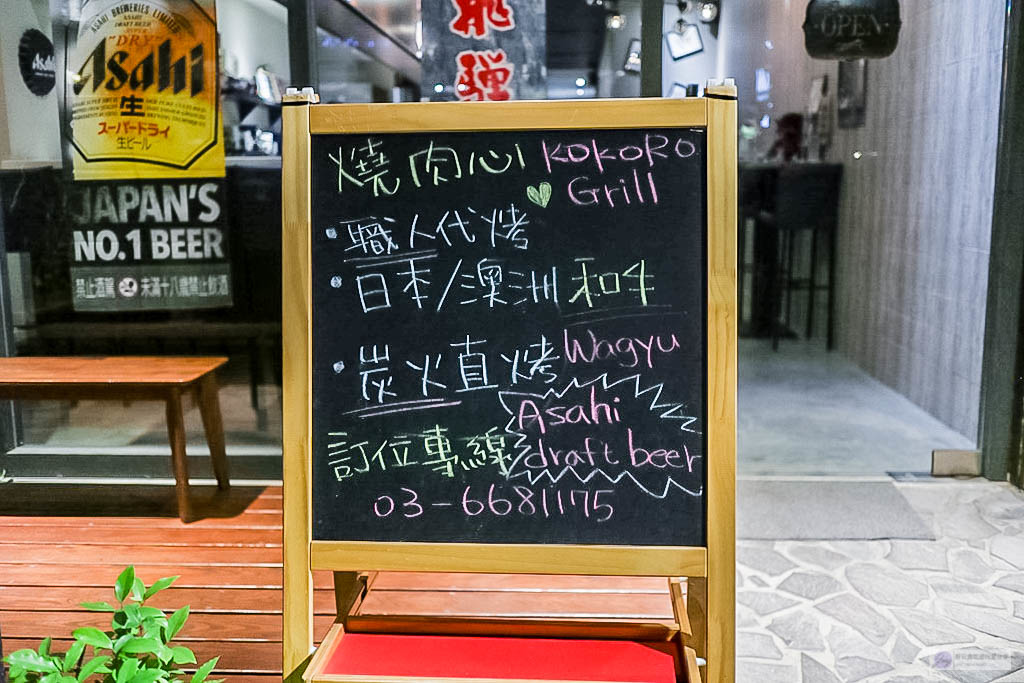 ASAHI BREWERIES LIMITED
ASAHI
DRAFT BEER
SUPER
"DRY"
Asahi
生
スーパードライ
生ビール
JAPAN'S
NO.1 BEER
禁止酒駕 未滿十八歲禁止飲酒
飛騨
OPEN
燒肉心 KOKORO
Grill
・職人代烤
・日本/澳洲 和牛
・炭火直烤 Wagyu
Asahi
draft beer
訂位專線
03-6681175